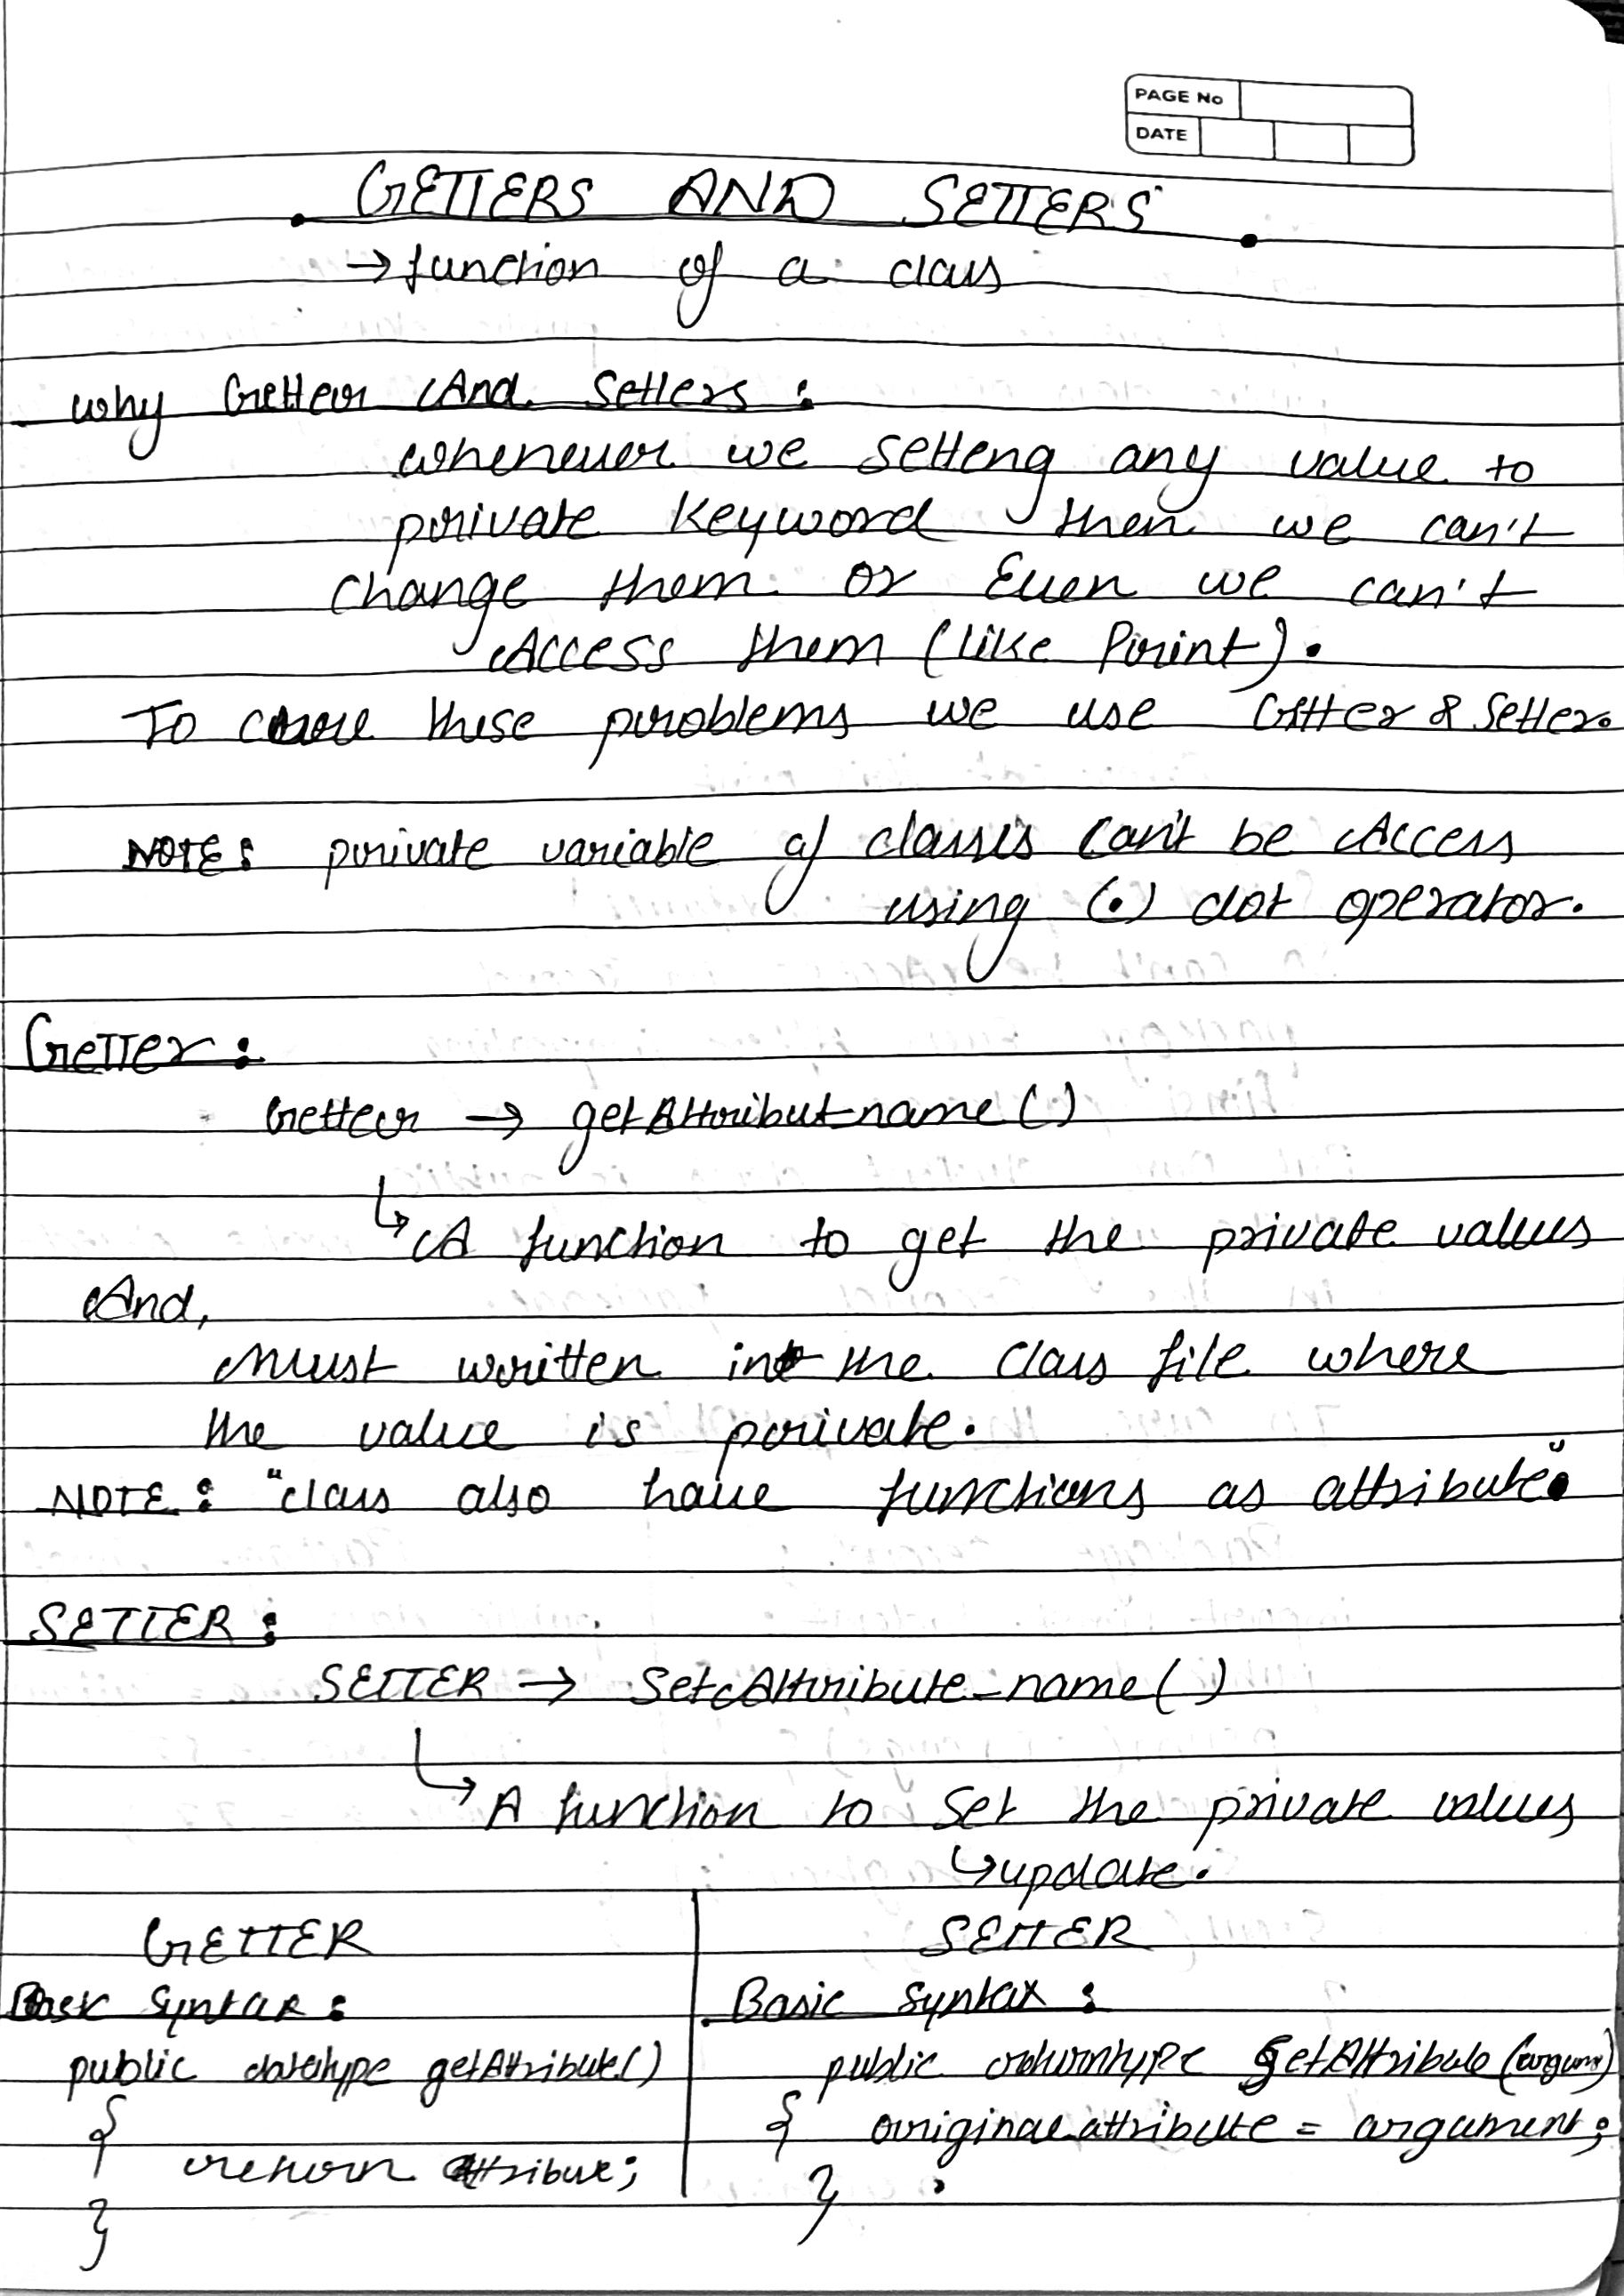 PAGE No
DATE
GETTERS AND SETTERS
→ function of a class
why Getter And Setters :
whenever we setteng any value to
private keyword then we can't
change them or Even we can't
Access them (like Print).
To cure these problems we use Getter & Setter.
NOTE: private variable of classes can't be Access
using (.) dot operator.
Getter :
Getter → getAttribut_name()
↳ A function to get the private values
And,
Must written in the class file where
the value is private.
NOTE : "class also have functions as attribute"
SETTER :
SETTER → SetAttribute_name()
↳ A function to set the private values
↳ update.
GETTER
Basic Syntax :
public datatype getAttribute()
{
return Attribute;
}
SETTER
Basic Syntax :
public returntype SetAttribute (argum)
{ original attribute = argument;
}